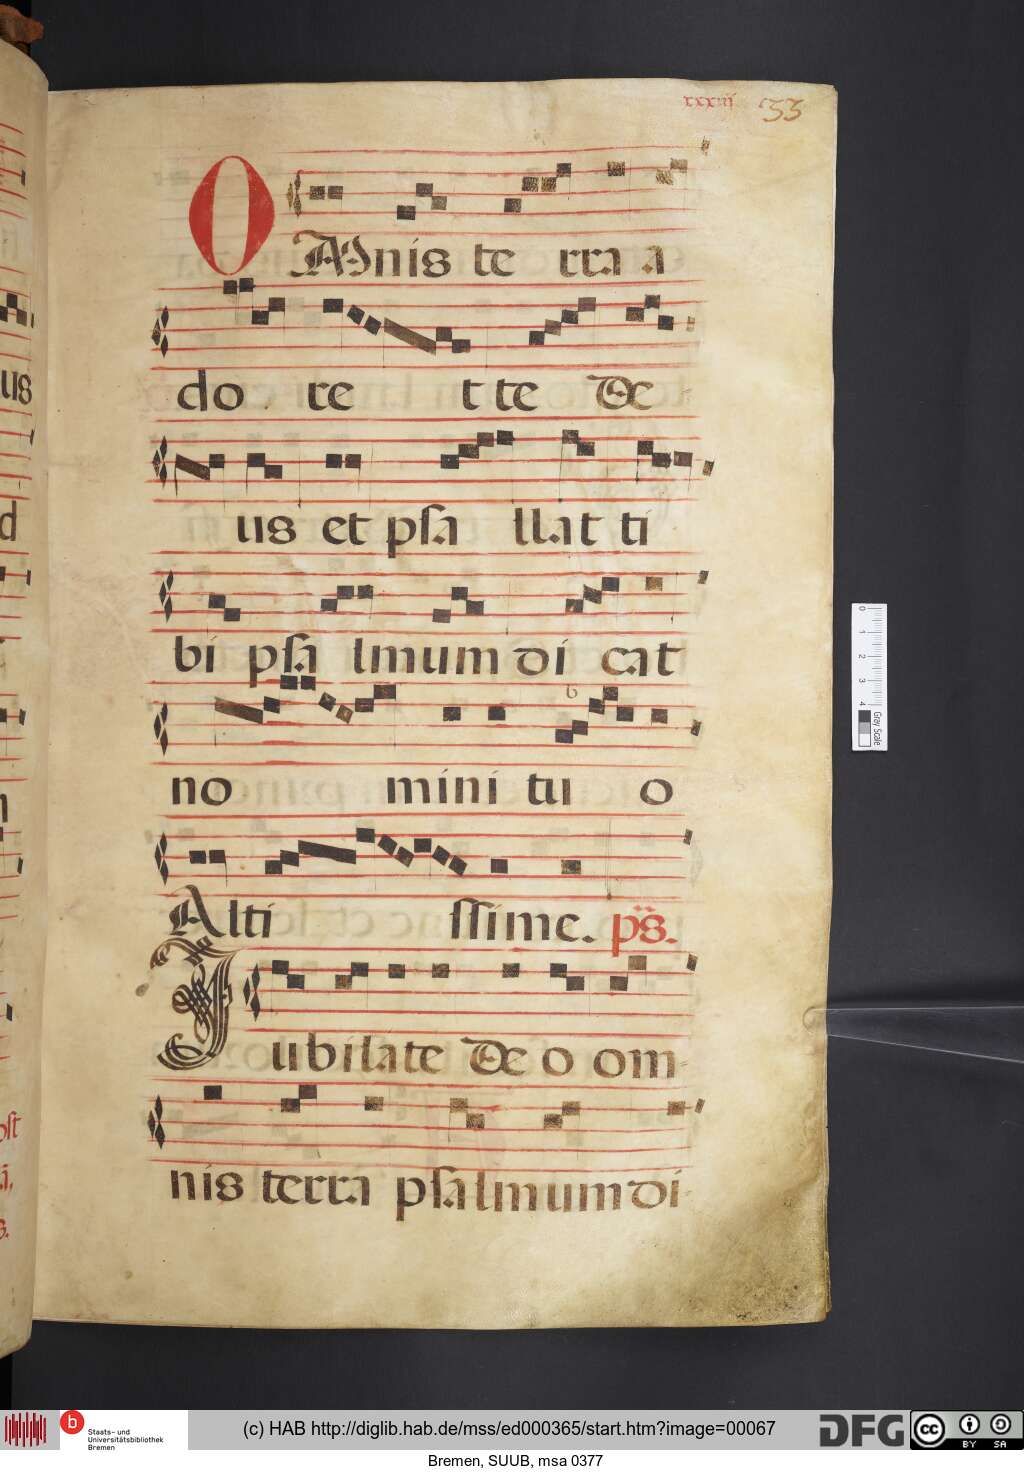 xxxiij 33
OMnis te rra a
do re t te De
us et psa llat ti
bi psa lmum di cat
b
no mini tu o
Alti ssime. ps.
Jubilate De o om-
nis terra psalmum di-
us
d
ost
0 1 2 3 4 Gray Scale
b Staats- und Universitätsbibliothek Bremen
(c) HAB http://diglib.hab.de/mss/ed000365/start.htm?image=00067
DFG cc BY SA
Bremen, SUUB, msa 0377